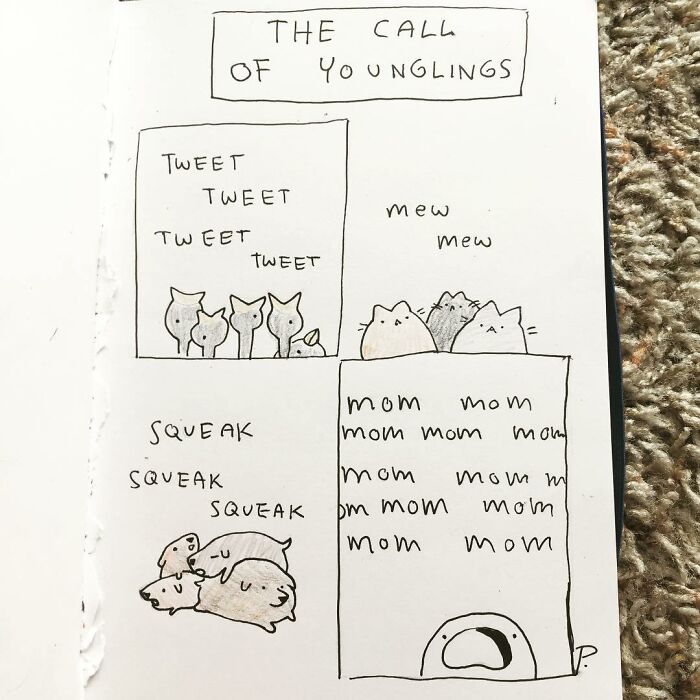 THE CALL
OF YOUNGLINGS
TWEET
TWEET
TWEET
TWEET
mew
mew
SQUEAK
SQUEAK
SQUEAK
mom mom
mom mom mom
mom mom m
om mom mom
mom mom
P.